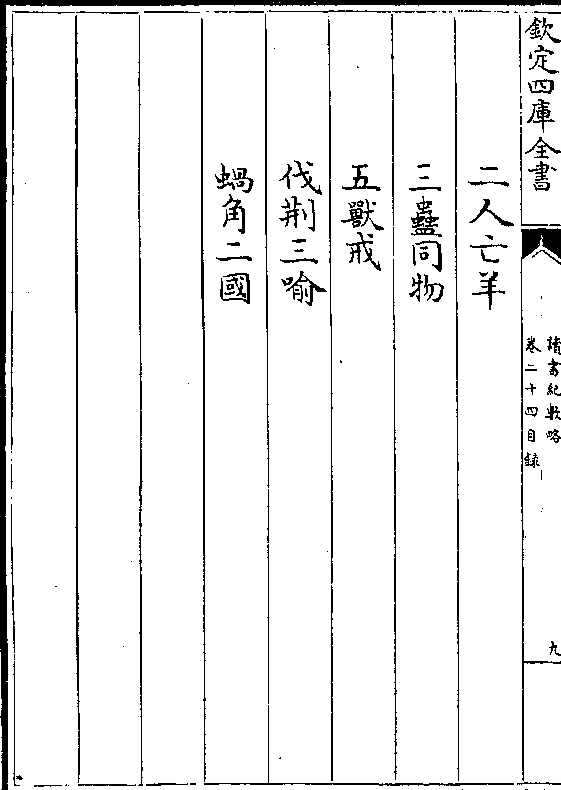 欽定四庫全書
讀書紀數略
卷二十四目錄
九
二人亡羊
三蠱同物
五獸戒
伐荆三喻
蝸角二國